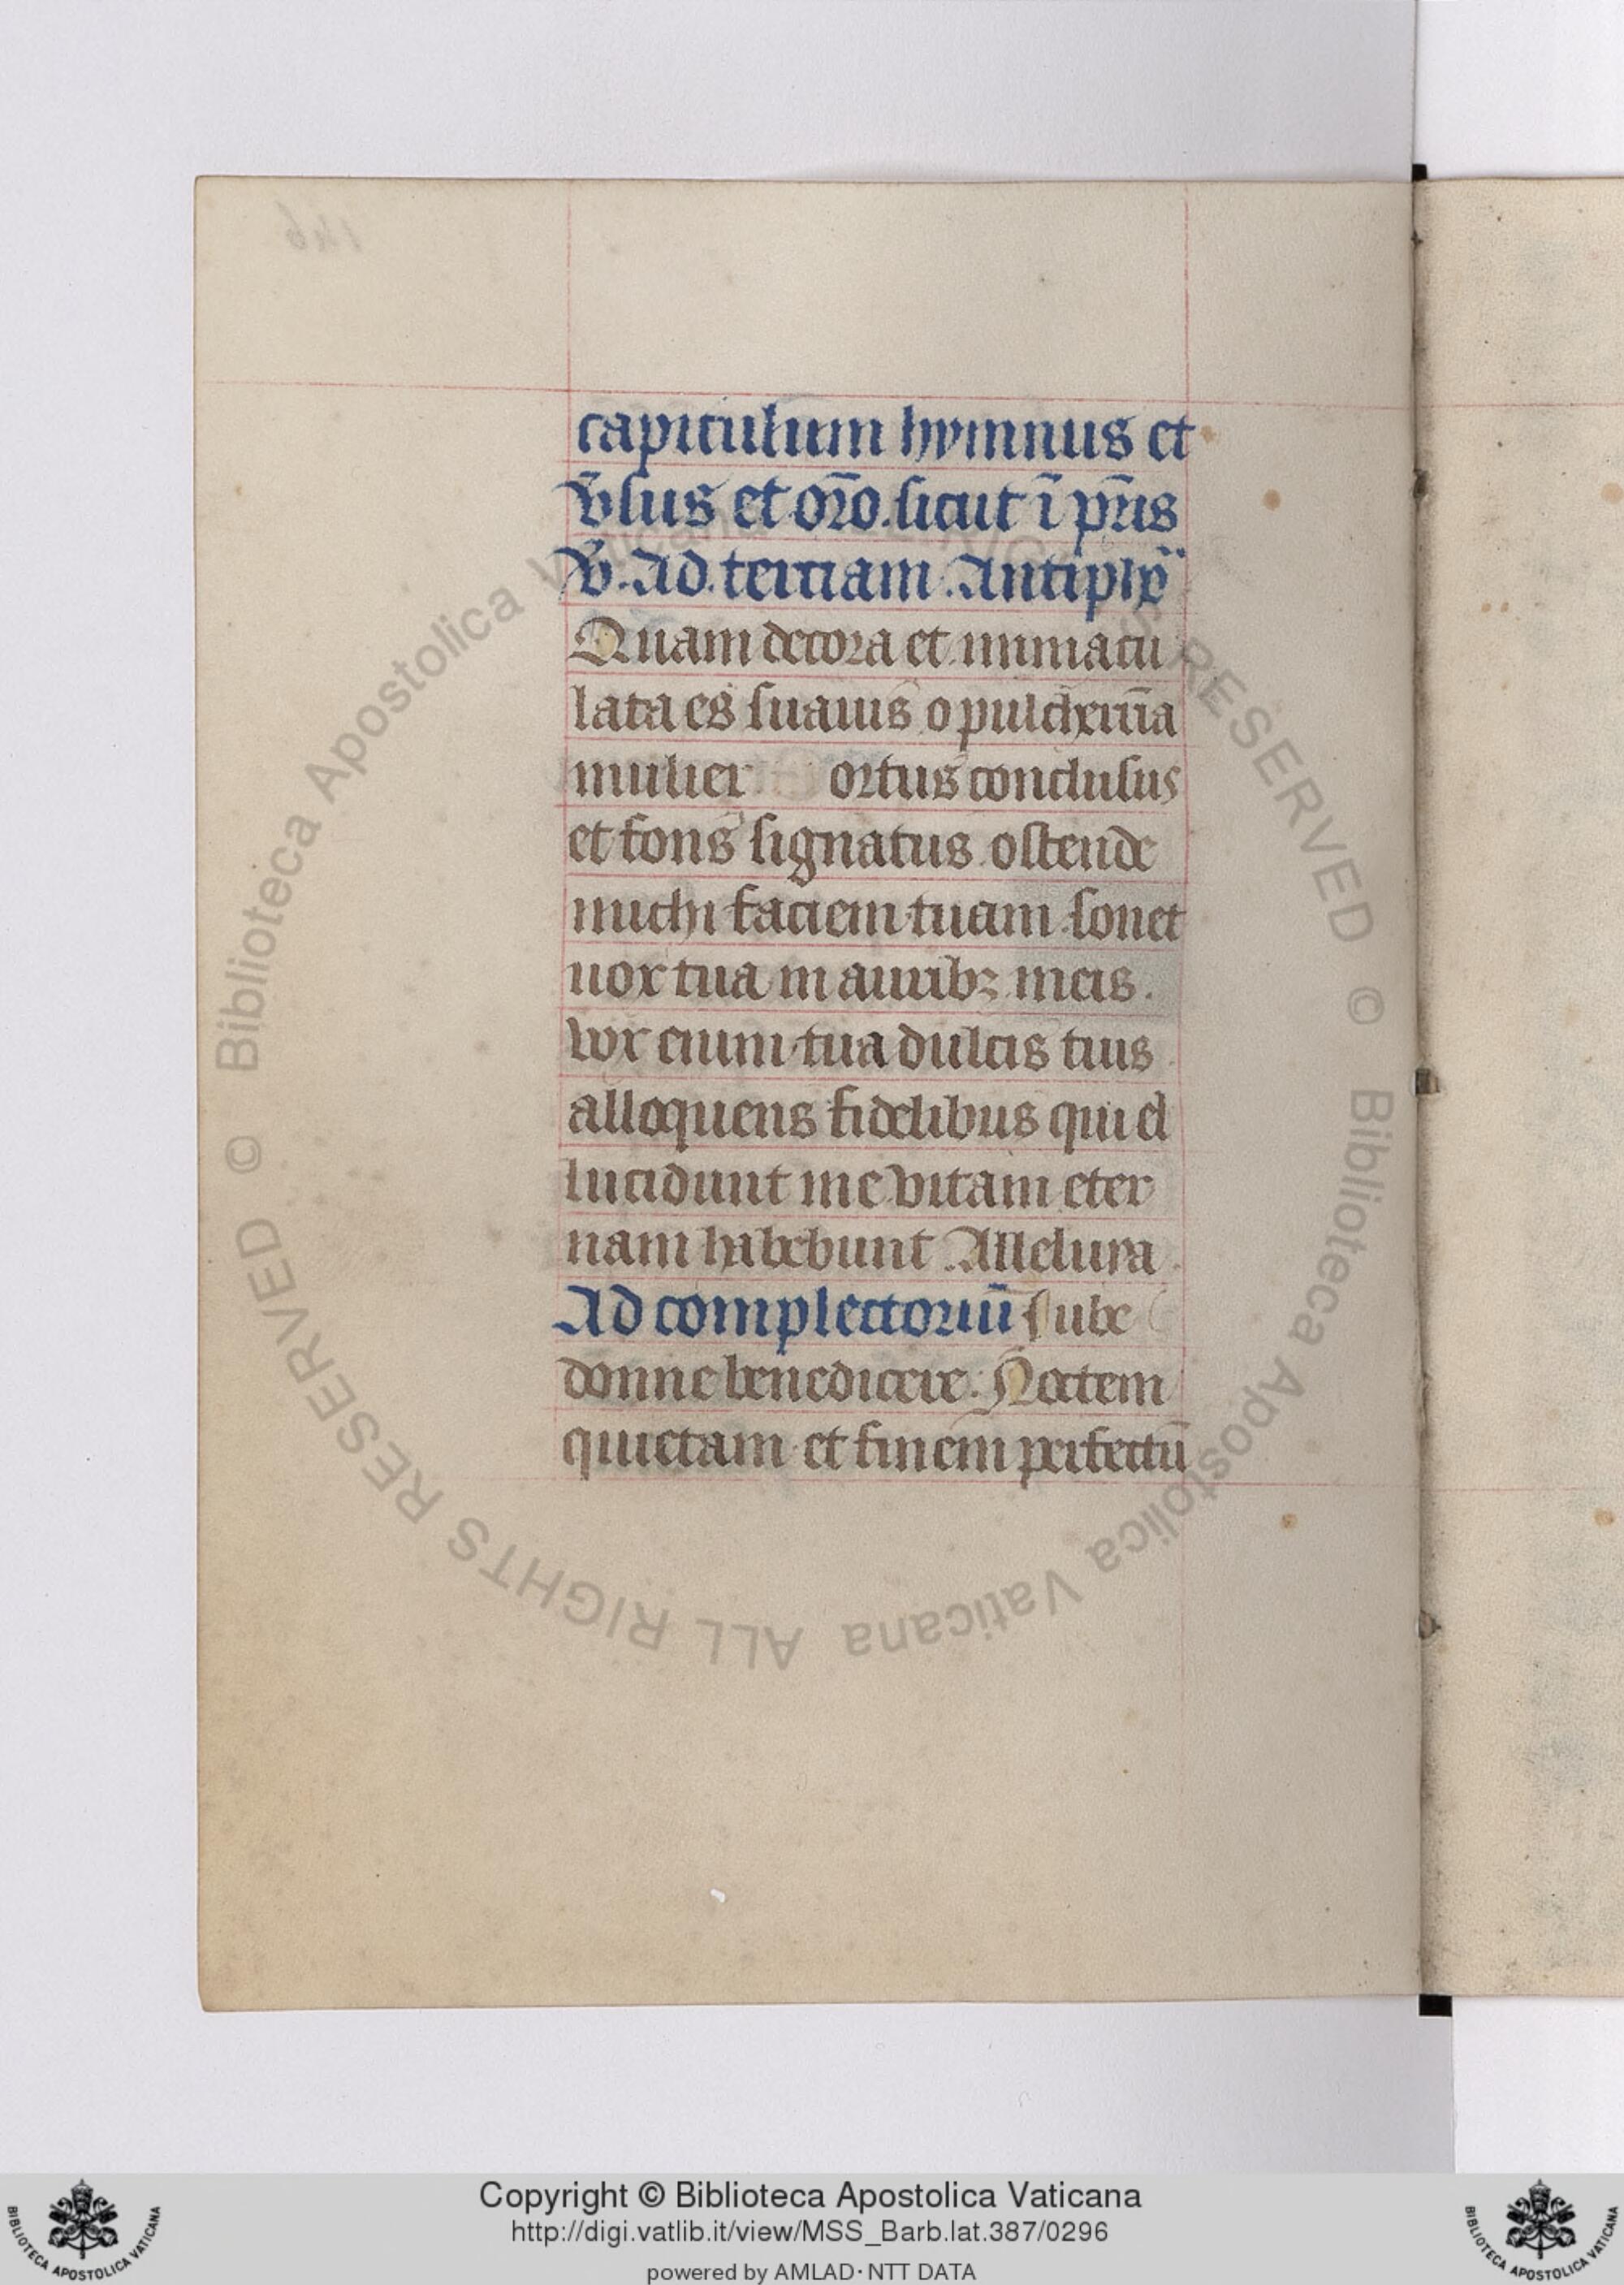 capitulum hymnus et
v̄sus et or̄o. sicut ī pr̄is
v̄. Ad. terciam. Antiph
Quam decora et immacu
lata es suauis o pulcherīa
mulier ortus conclusus
et fons signatus. ostende
michi faciem tuam. sonet
uox tua in auribꝫ meis.
vox enim tua dulcis tuis
alloquens fidelibus qui el
lucidunt me vitam eter
nam habebunt. Alleluya
Ad complectoriū Iube
domne benedicere. Noctem
quietam et finem perfectū
Copyright © Biblioteca Apostolica Vaticana
http://digi.vatlib.it/view/MSS_Barb.lat.387/0296
powered by AMLAD·NTT DATA
BIBLIOTECA APOSTOLICA VATICANA
BIBLIOTECA APOSTOLICA VATICANA
© Biblioteca Apostolica Vaticana ALL RIGHTS RESERVED
© Biblioteca Apostolica Vaticana ALL RIGHTS RESERVED